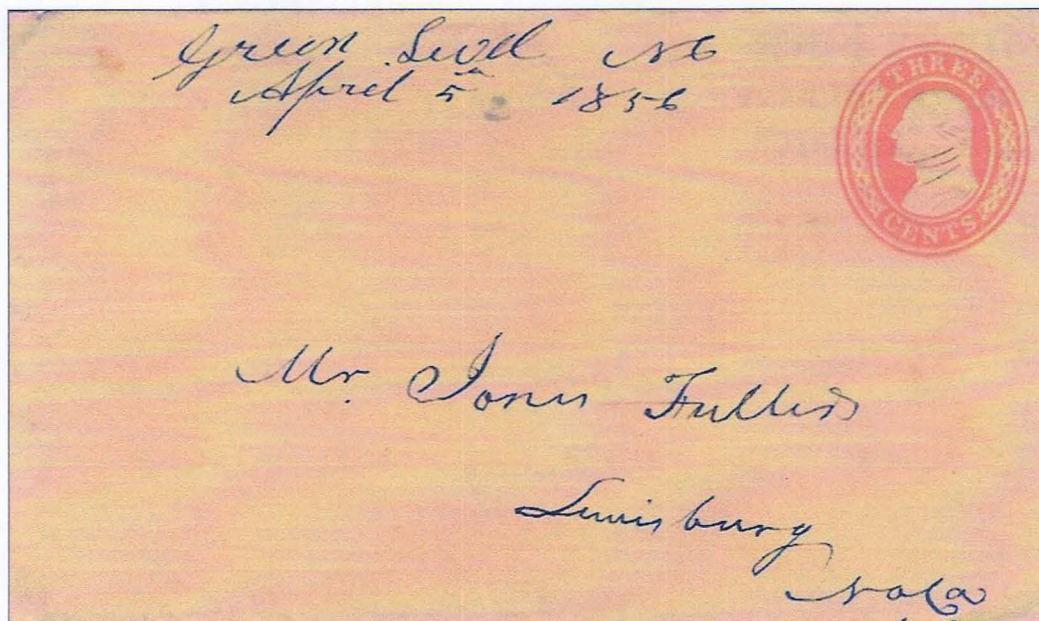 Green Level NC
April 5th 1856
THREE
CENTS
Mr. Jones Fuller
Louisburg
No Ca